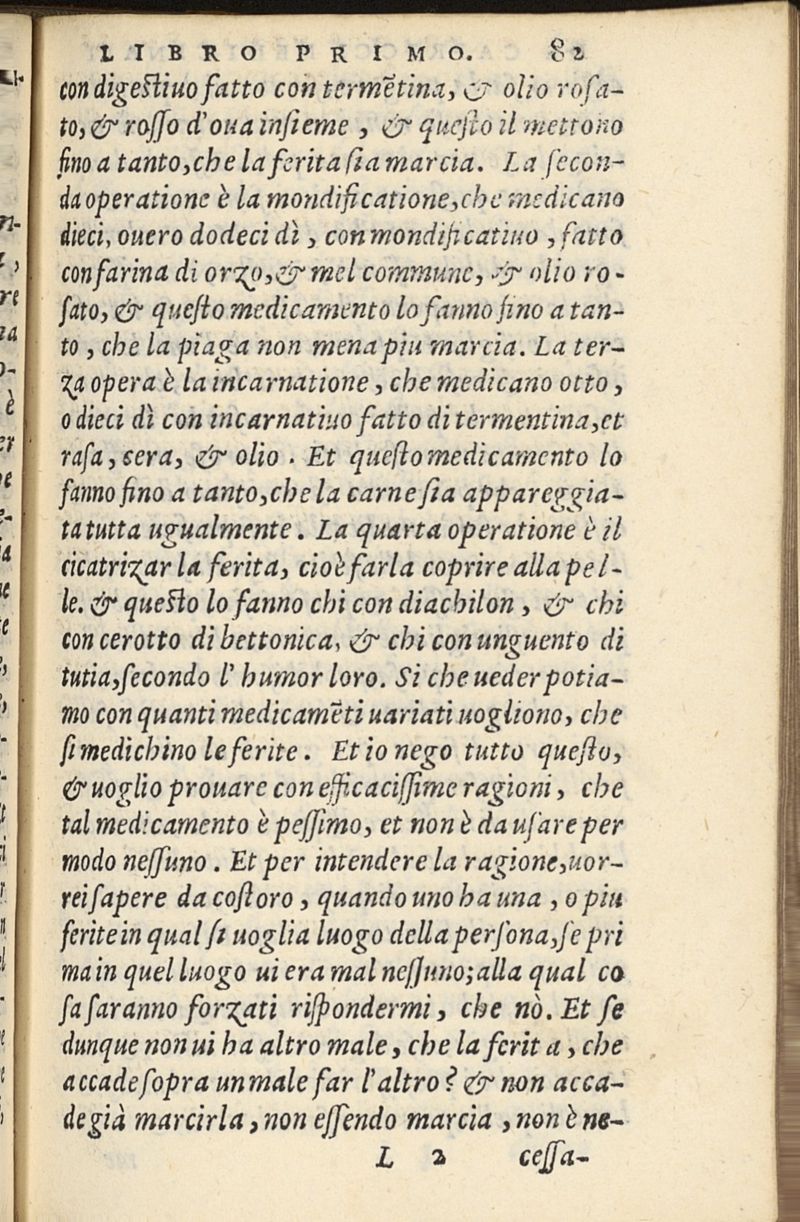 LIBRO PRIMO. 82
con digestiuo fatto con termẽtina, & olio rosa-
to, & rosso d'oua insieme, & questo il mettono
fino a tanto, che la ferita sia marcia. La secon-
da operatione è la mondificatione, che medicano
dieci, ouero dodeci dì, con mondificatiuo, fatto
con farina di orzo, & mel commune, & olio ro-
sato, & questo medicamento lo fanno fino a tan-
to, che la piaga non mena piu marcia. La ter-
za opera è la incarnatione, che medicano otto,
o dieci dì con incarnatiuo fatto di termentina, et
rasa, cera, & olio. Et questo medicamento lo
fanno fino a tanto, che la carne sia appareggia-
ta tutta ugualmente. La quarta operatione è il
cicatrizar la ferita, cioè farla coprire alla pel-
le. & questo lo fanno chi con diachilon, & chi
con cerotto di bettonica, & chi con unguento di
tutia, secondo l'humor loro. Si che ueder potia-
mo con quanti medicamẽti uariati uogliono, che
si medichino le ferite. Et io nego tutto questo,
& uoglio prouare con efficacissime ragioni, che
tal medicamento è pessimo, et non è da usare per
modo nessuno. Et per intendere la ragione, uor-
rei sapere da costoro, quando uno ha una, o piu
ferite in qual si uoglia luogo della persona, se pri
ma in quel luogo ui era mal nessuno; alla qual co
sa saranno forzati rispondermi, che nò. Et se
dunque non ui ha altro male, che la ferita, che
accade sopra un male far l'altro? & non acca-
de già marcirla, non essendo marcia, non è ne-
L 2 cessa-